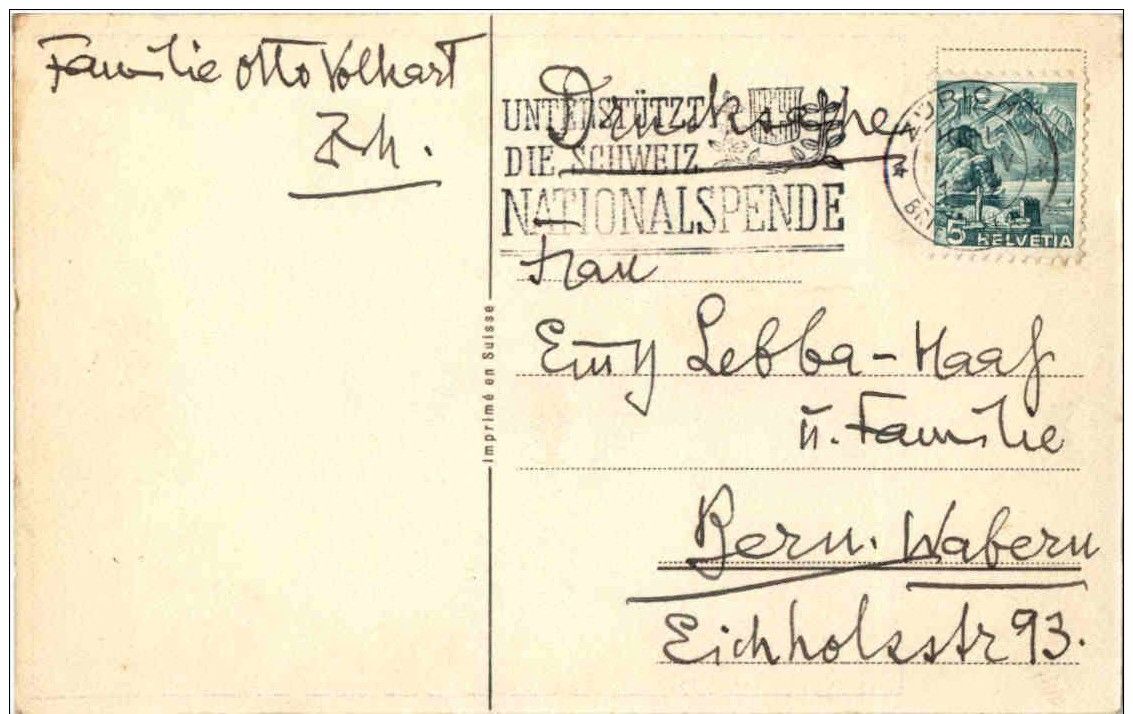 Familie Otto Volkart
Zch.
Drucksache
UNTERSTÜTZT
DIE SCHWEIZ
NATIONALSPENDE
ZÜRICH
5 HELVETIA
Frau
Emy Lebba-Haaf
u. Familie
Bern. Wabern
Eichholzstr 93.
Imprimé en Suisse